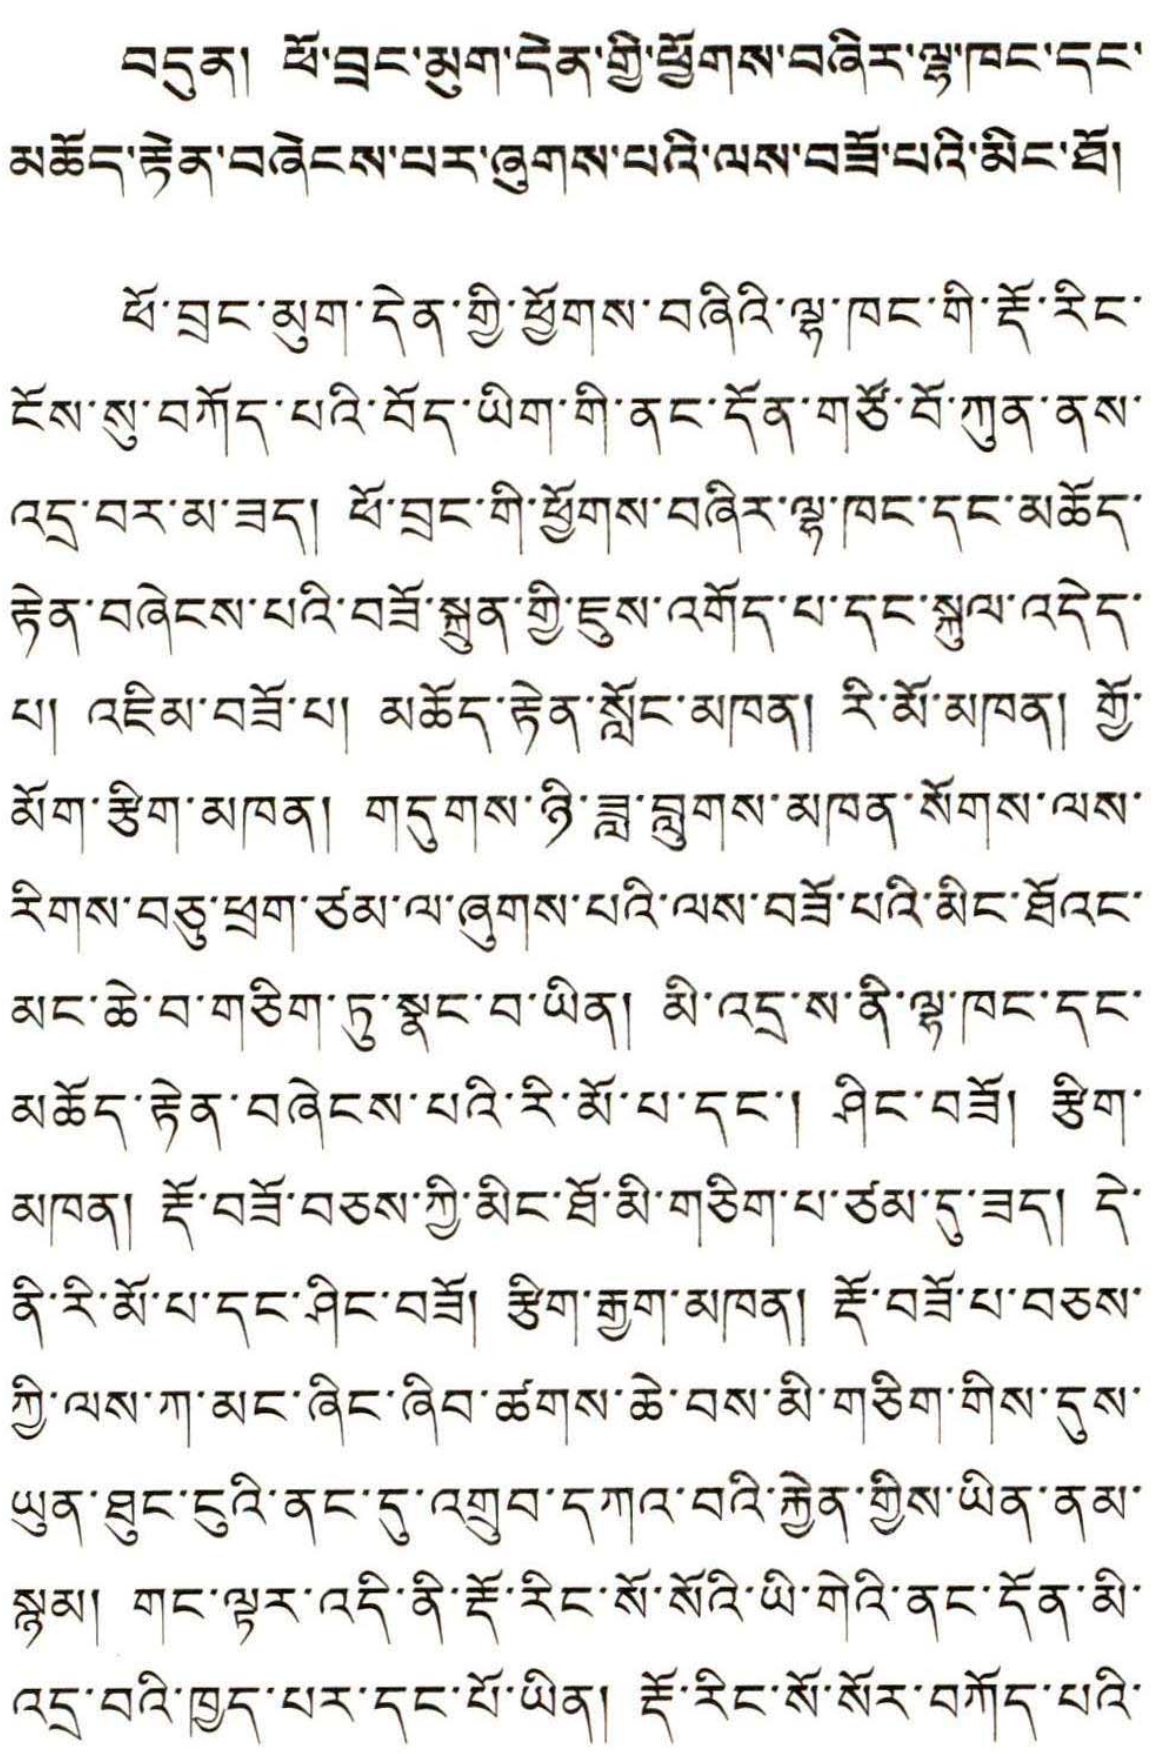 བདུན། ཕོ་བྲང་མུག་དེན་གྱི་ཕྱོགས་བཞིར་ལྷ་ཁང་དང་
མཆོད་རྟེན་བཞེངས་པར་ཞུགས་པའི་ལས་བཟོ་པའི་མིང་ཐོ།
ཕོ་བྲང་མུག་དེན་གྱི་ཕྱོགས་བཞིའི་ལྷ་ཁང་གི་རྡོ་རིང་
ངོས་སུ་བཀོད་པའི་བོད་ཡིག་གི་ནང་དོན་གཙོ་བོ་ཀུན་ནས་
འདྲ་བར་མ་ཟད། ཕོ་བྲང་གི་ཕྱོགས་བཞིར་ལྷ་ཁང་དང་མཆོད་
རྟེན་བཞེངས་པའི་བཟོ་སྐྲུན་གྱི་ཇུས་འགོད་པ་དང་སྐུལ་འདེད་
པ། འཇིམ་བཟོ་པ། མཆོད་རྟེན་སློང་མཁན། རི་མོ་མཁན། གྱོ་
མོག་རྩིག་མཁན། གདུགས་ཉི་ཟླ་བླུགས་མཁན་སོགས་ལས་
རིགས་བཅུ་ཕྲག་ཙམ་ལ་ཞུགས་པའི་ལས་བཟོ་པའི་མིང་ཐོའང་
མང་ཆེ་བ་གཅིག་ཏུ་སྣང་བ་ཡིན། མི་འདྲ་ས་ནི་ལྷ་ཁང་དང་
མཆོད་རྟེན་བཞེངས་པའི་རི་མོ་པ་དང་། ཤིང་བཟོ། རྩིག་
མཁན། རྡོ་བཟོ་བཅས་ཀྱི་མིང་ཐོ་མི་གཅིག་པ་ཙམ་དུ་ཟད། དེ་
ནི་རི་མོ་པ་དང་ཤིང་བཟོ། རྩིག་རྒྱག་མཁན། རྡོ་བཟོ་པ་བཅས་
ཀྱི་ལས་ཀ་མང་ཞིང་ཞིབ་ཚགས་ཆེ་བས་མི་གཅིག་གིས་དུས་
ཡུན་ཐུང་ངུའི་ནང་དུ་འགྲུབ་དཀའ་བའི་རྐྱེན་གྱིས་ཡིན་ནམ་
སྙམ། གང་ལྟར་འདི་ནི་རྡོ་རིང་སོ་སོའི་ཡི་གེའི་ནང་དོན་མི་
འདྲ་བའི་ཁྱད་པར་དང་པོ་ཡིན། རྡོ་རིང་སོ་སོར་བཀོད་པའི་